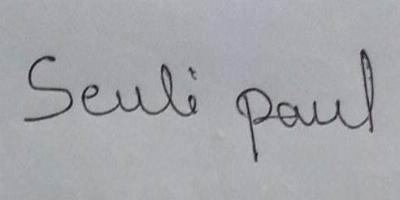 Seuli paul